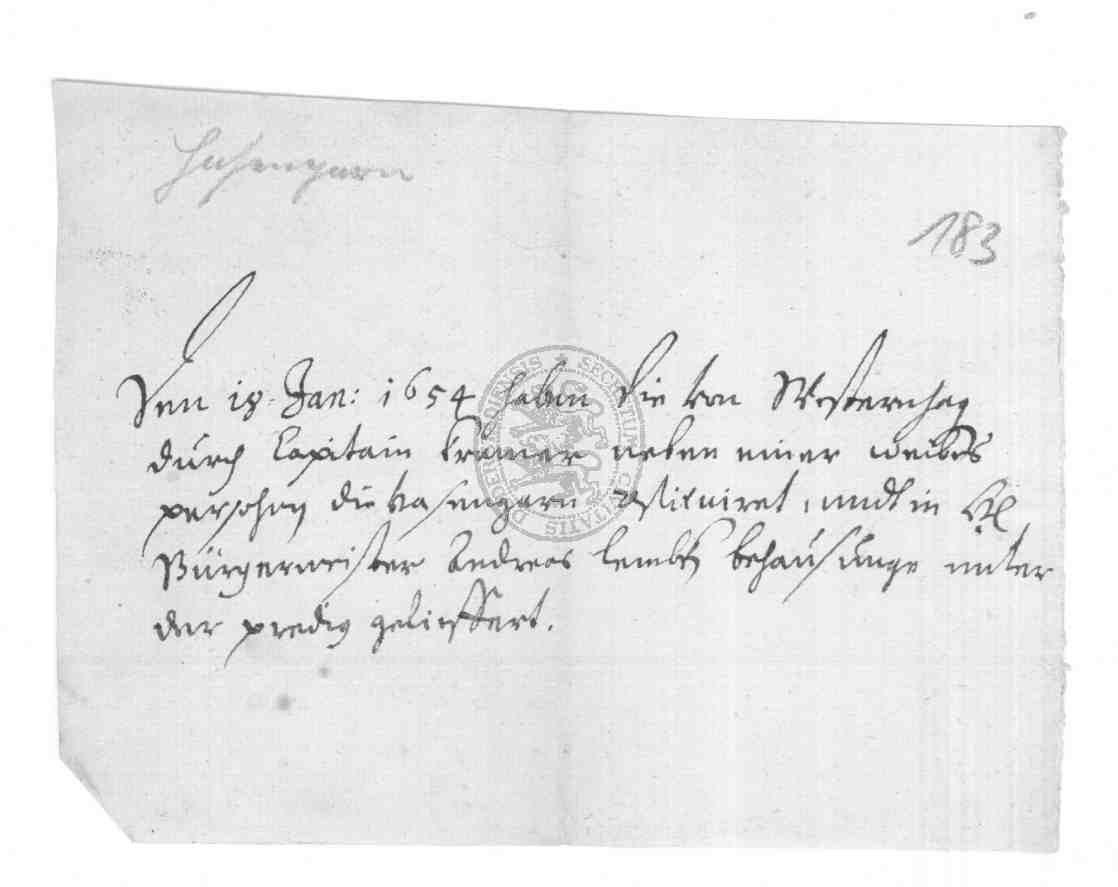 Hasengarn
183
Den 18. Jan: 1654 haben die von Westernhag
durch Capitain Cramer neben einer weibes
persohn die hasengarn restituiret, undt in H
Bürgermeister Andreas lembs behausunge unter
der predig gelieffert.